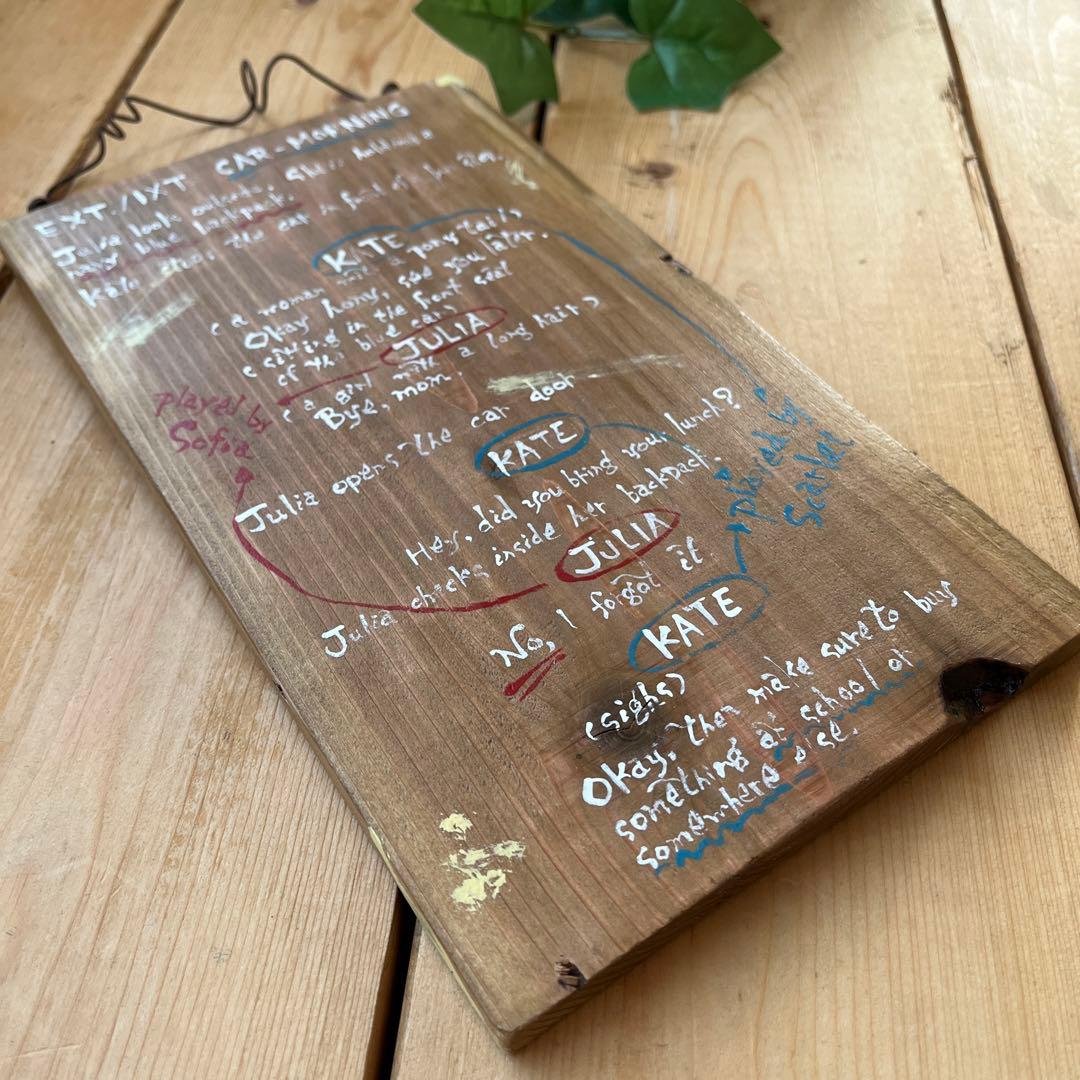 EXT./IXT CAR - MORNING
Julia look outside. She is holding a
navy blue backpack.
Kate the car in front of
KATE
(a woman with a pony tail)
Okay hony, see you later.
(siting in the font seat
of the blue car)
JULIA
(a girl with a long hair)
Bye, mom
played by
Sofia
Julia opens the car door
KATE
Hey, did you bring your lunch?
played by
Scarlet
Julia chicks inside her backpack.
JULIA
No, I forgot it
KATE
(sighs)
Okay, then make sure to buy
something at school or
somewhere else.